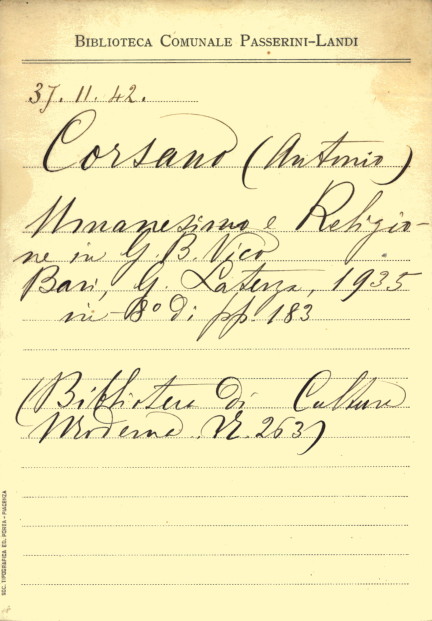 BIBLIOTECA COMUNALE PASSERINI-LANDI
3J. II. 42.
Corsano (Antonio)
Umanesimo e Religio-
ne in G. B. Vico
Bari, G. Laterza, 1935
in 8° di pp. 183
(Biblioteca di Cultura
Moderna. N. 263)
SOC. TIPOGRAFICA ED. PORTA - PIACENZA